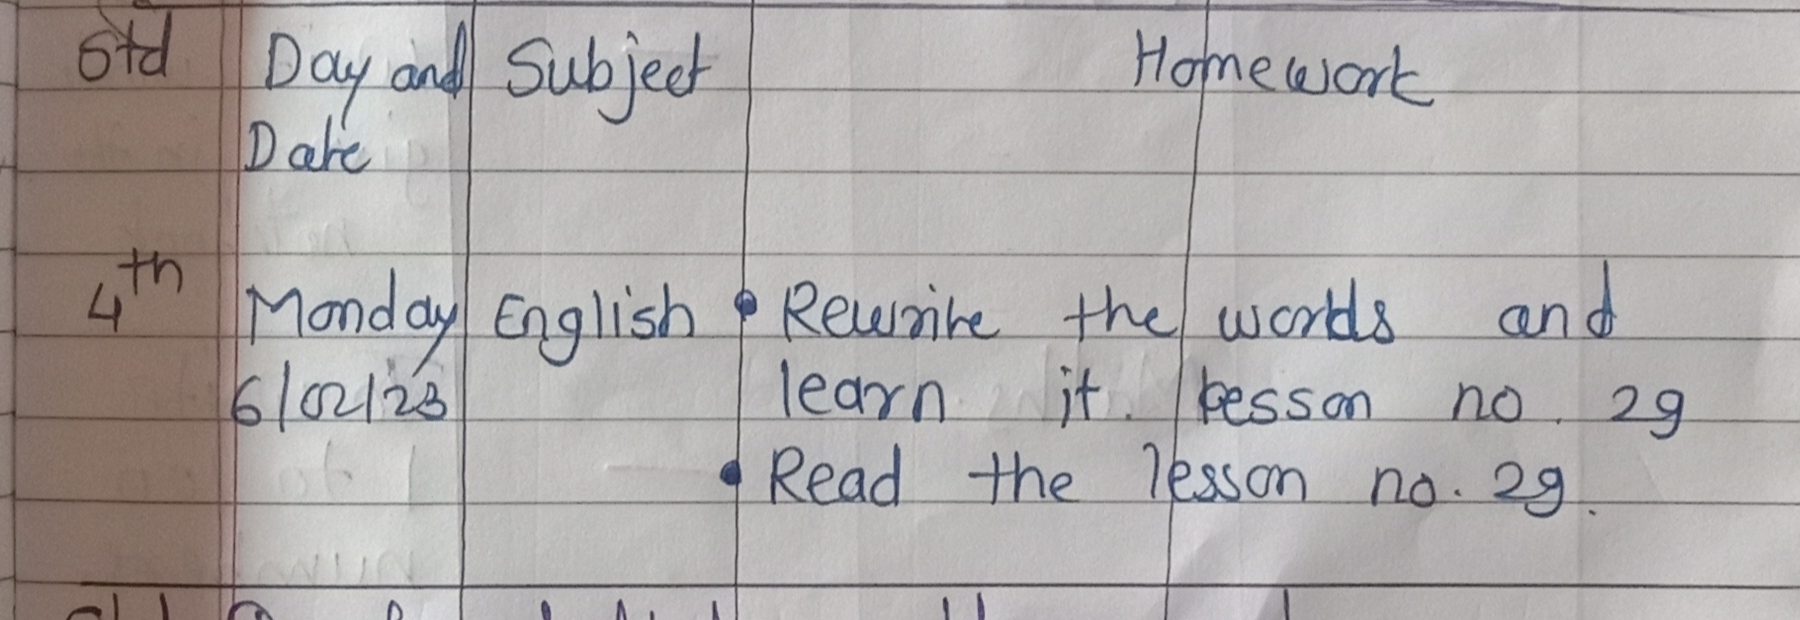 Std Day and Subject Homework
Date
4th Monday English • Rewrite the words and
6/02/23 learn it. Lesson no. 29
• Read the lesson no. 29.